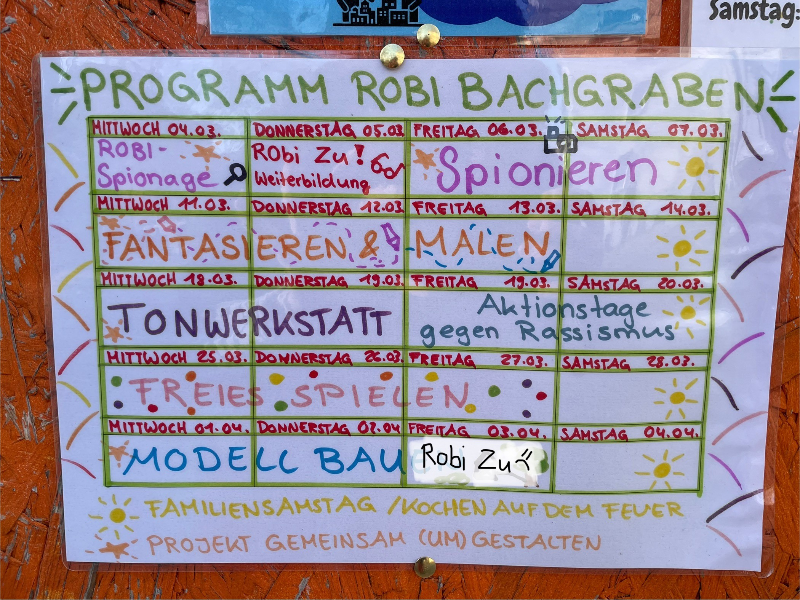 Samstag:
PROGRAMM ROBI BACHGRABEN
MITTWOCH 04.03. DONNERSTAG 05.03. FREITAG 06.03. SAMSTAG 07.03.
ROBI-
Spionage
RObi Zu!
Weiterbildung
Spionieren
MITTWOCH 11.03. DONNERSTAG 12.03. FREITAG 13.03. SAMSTAG 14.03.
FANTASIEREN & MALEN
MITTWOCH 18.03. DONNERSTAG 19.03. FREITAG 19.03. SAMSTAG 20.03.
TONWERKSTATT
Aktionstage
gegen Rassismus
MITTWOCH 25.03. DONNERSTAG 26.03. FREITAG 27.03. SAMSTAG 28.03.
FREIES SPIELEN
MITTWOCH 01.04. DONNERSTAG 02.04 FREITAG 03.04. SAMSTAG 04.04.
MODELL BAU
Robi Zu
FAMILIENSAMSTAG /KOCHEN AUF DEM FEUER
PROJEKT GEMEINSAM (UM)GESTALTEN